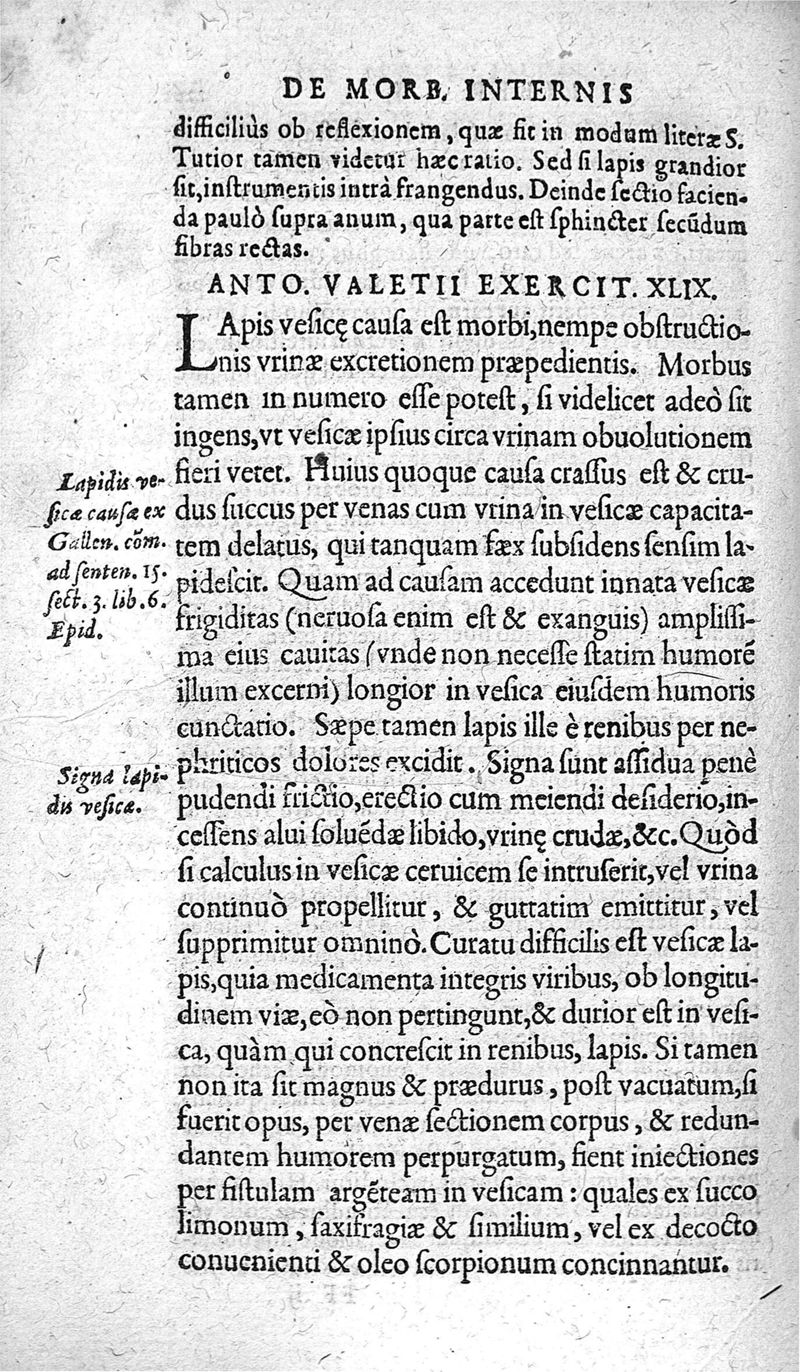 DE MORB. INTERNIS
difficiliùs ob reflexionem, quæ fit in modum literæ S.
Tutior tamen videtur hæc ratio. Sed ſi lapis grandior
ſit, inſtrumentis intrà frangendus. Deinde ſectio facien-
da paulò ſupra anum, qua parte eſt ſphincter ſecũdum
fibras rectas.
ANTO. VALETII EXERCIT. XLIX.
LApis veſicę cauſa eſt morbi, nempe obſtructio-
nis vrinæ excretionem præpedientis. Morbus
tamen in numero eſſe poteſt, ſi videlicet adeò ſit
ingens, vt veſicæ ipſius circa vrinam obuolutionem
fieri vetet. Huius quoque cauſa craſſus eſt & cru-
dus ſuccus per venas cum vrina in veſicæ capacita-
tem delatus, qui tanquam fæx ſubſidens ſenſim la-
pideſcit. Quam ad cauſam accedunt innata veſicæ
frigiditas (neruoſa enim eſt & exanguis) ampliſſi-
ma eius cauitas (vnde non neceſſe ſtatim humorẽ
illum excerni) longior in veſica eiuſdem humoris
cunctatio. Sæpe tamen lapis ille è renibus per ne-
phriticos dolores excidit. Signa ſunt aſſidua penè
pudendi frictio, erectio cum meiendi deſiderio, in-
ceſſens alui ſoluẽdæ libido, vrinę crudæ, &c. Quòd
ſi calculus in veſicæ ceruicem ſe intruſerit, vel vrina
continuò propellitur, & guttatim emittitur, vel
ſupprimitur omninò. Curatu difficilis eſt veſicæ la-
pis, quia medicamenta integris viribus, ob longitu-
dinem viæ, eò non pertingunt, & durior eſt in veſi-
ca, quàm qui concreſcit in renibus, lapis. Si tamen
non ita ſit magnus & prædurus, poſt vacuatum, ſi
fuerit opus, per venæ ſectionem corpus, & redun-
dantem humorem perpurgatum, fient iniectiones
per fiſtulam argẽteam in veſicam: quales ex ſucco
limonum, ſaxifragiæ & ſimilium, vel ex decocto
conuenienti & oleo ſcorpionum concinnantur.
Lapidis ve-
ſicæ cauſæ ex
Gallen. cõm.
ad ſenten. 15.
ſect. 3. lib. 6.
Epid.
Signa lapi-
dis veſicæ.